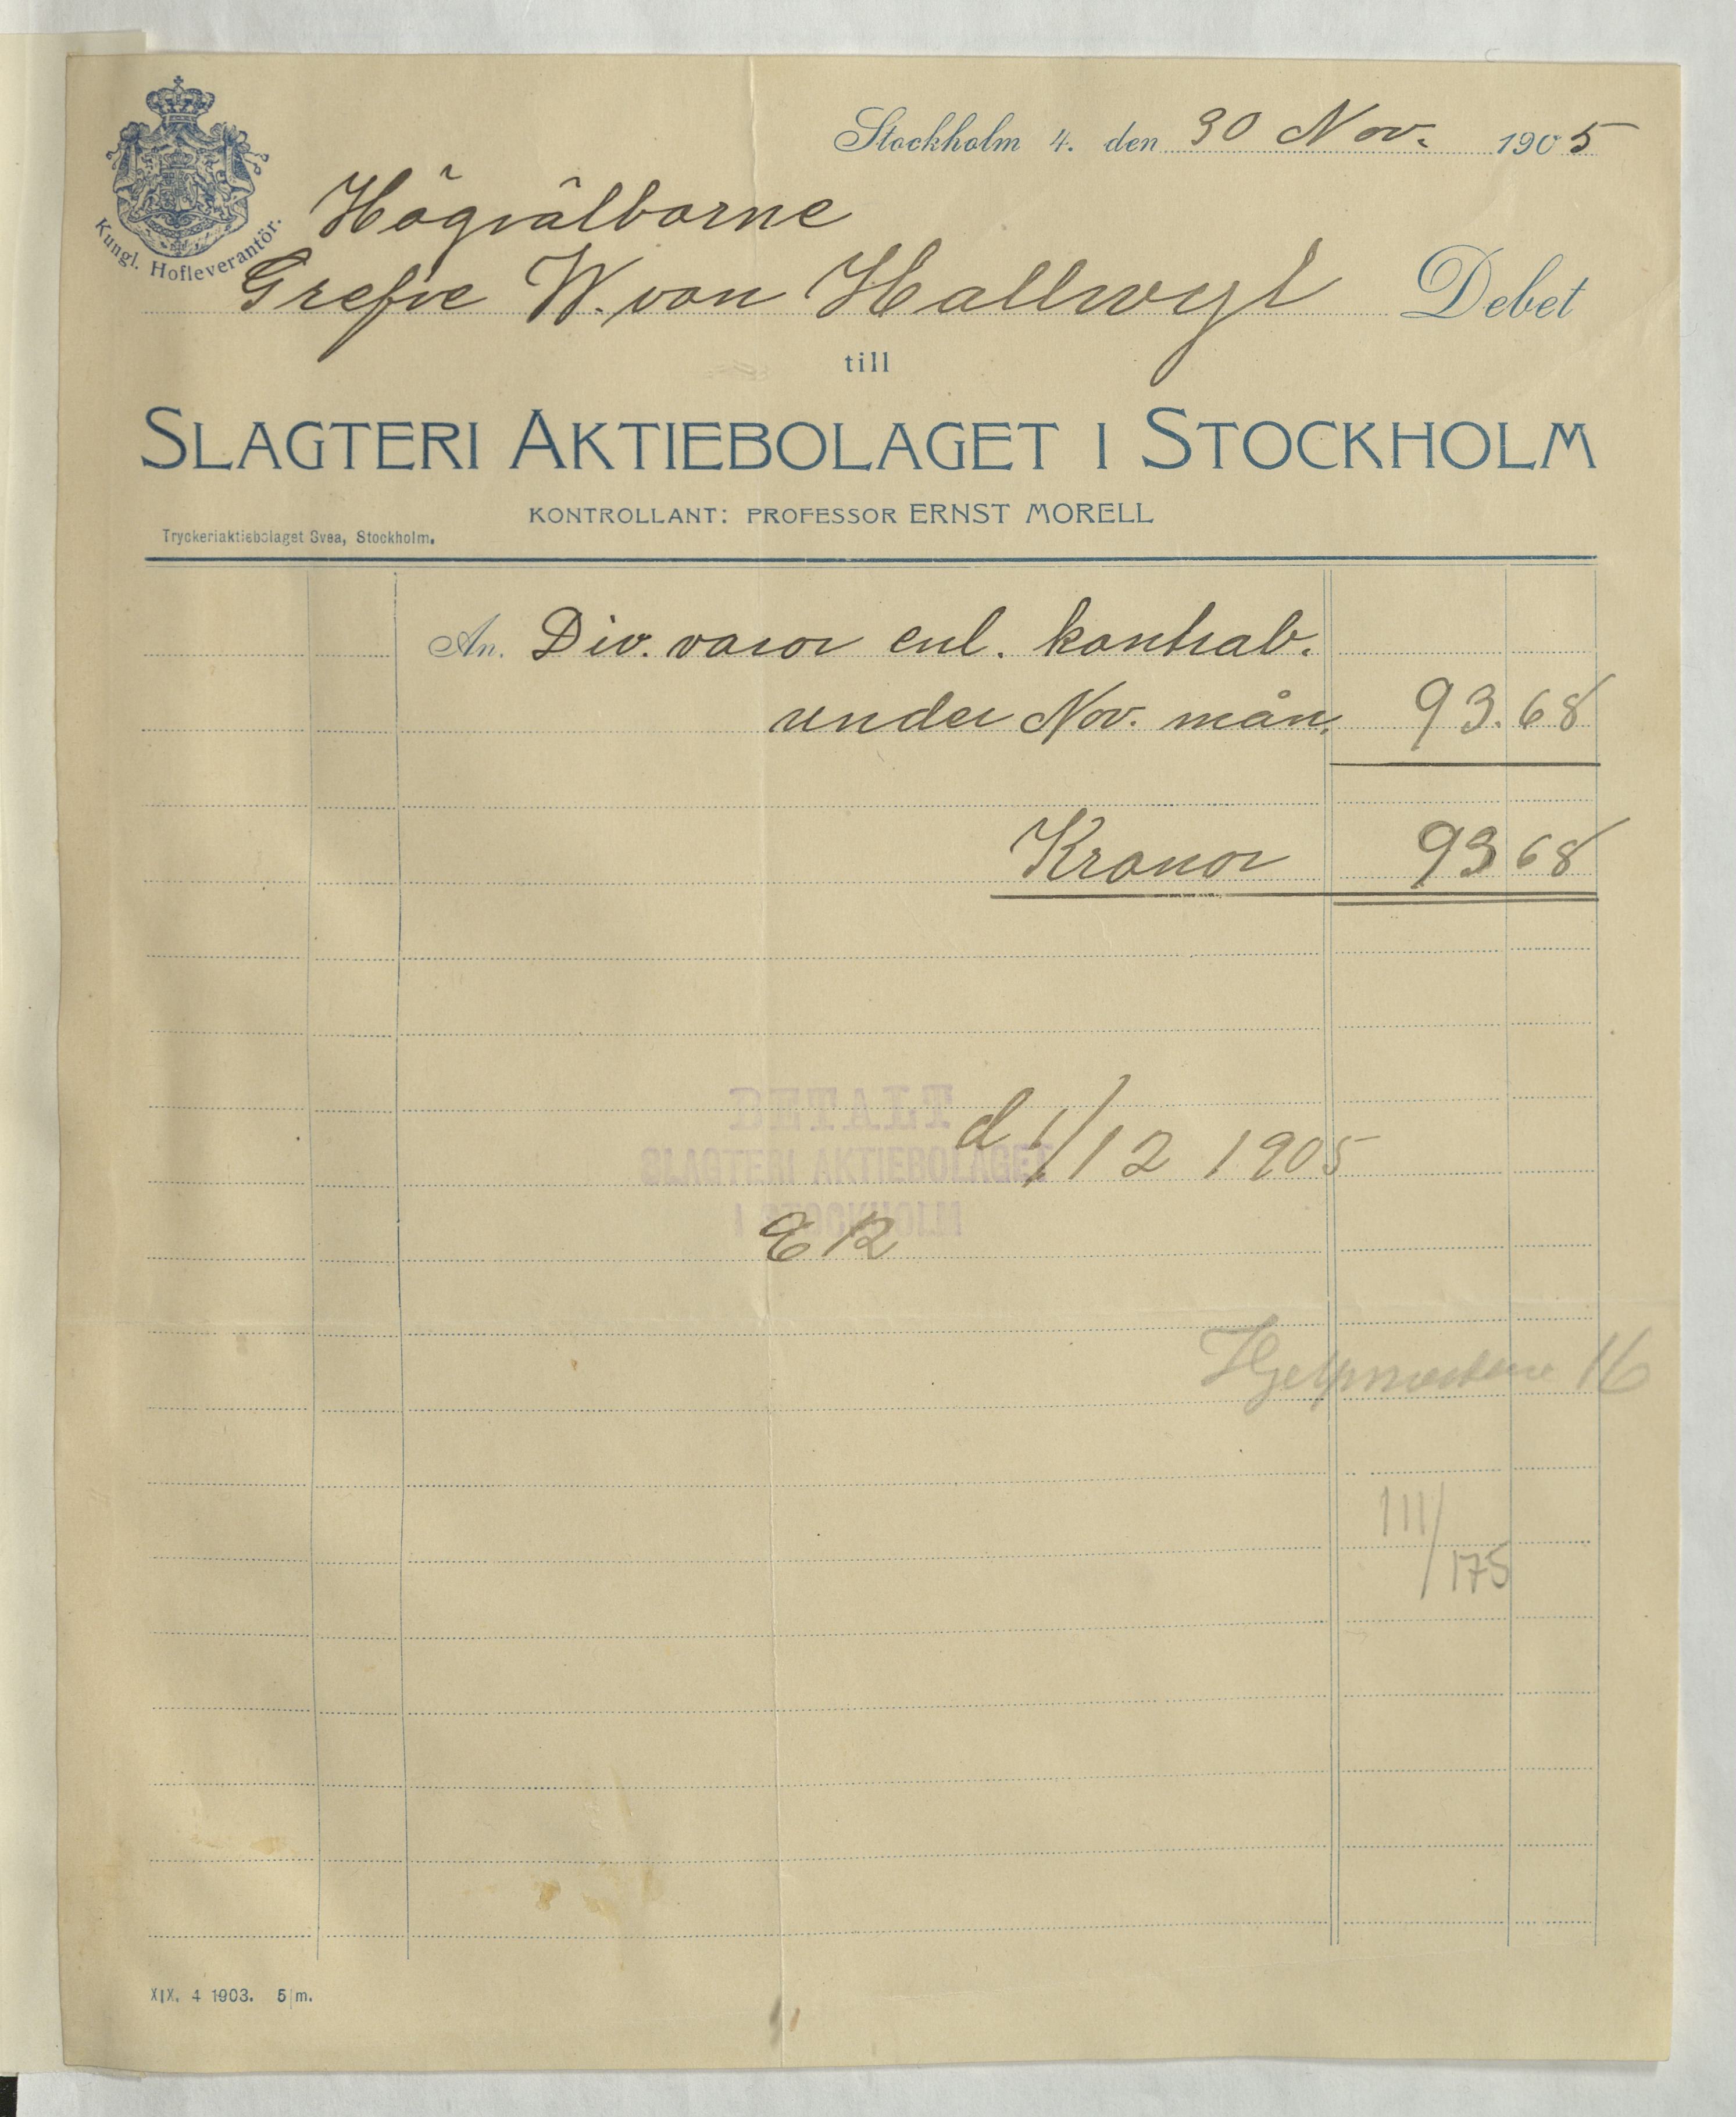 Stockholm 4. den 30 Nov. 1905
Kungl. Hofleverantör.
Högvälborne
Grefve W. von Hallwyl Debet
till
SLAGTERI AKTIEBOLAGET I STOCKHOLM
KONTROLLANT: PROFESSOR ERNST MORELL
Tryckeriaktiebolaget Svea, Stockholm.
An. Div. varor enl. kontrab.
under Nov. mån. 93.68
Kronor 93 68
BETALT
d 1/12 1905
SLAGTERI AKTIEBOLAGET
I STOCKHOLM
16
111/175
XIX. 4 1903. 5/m.